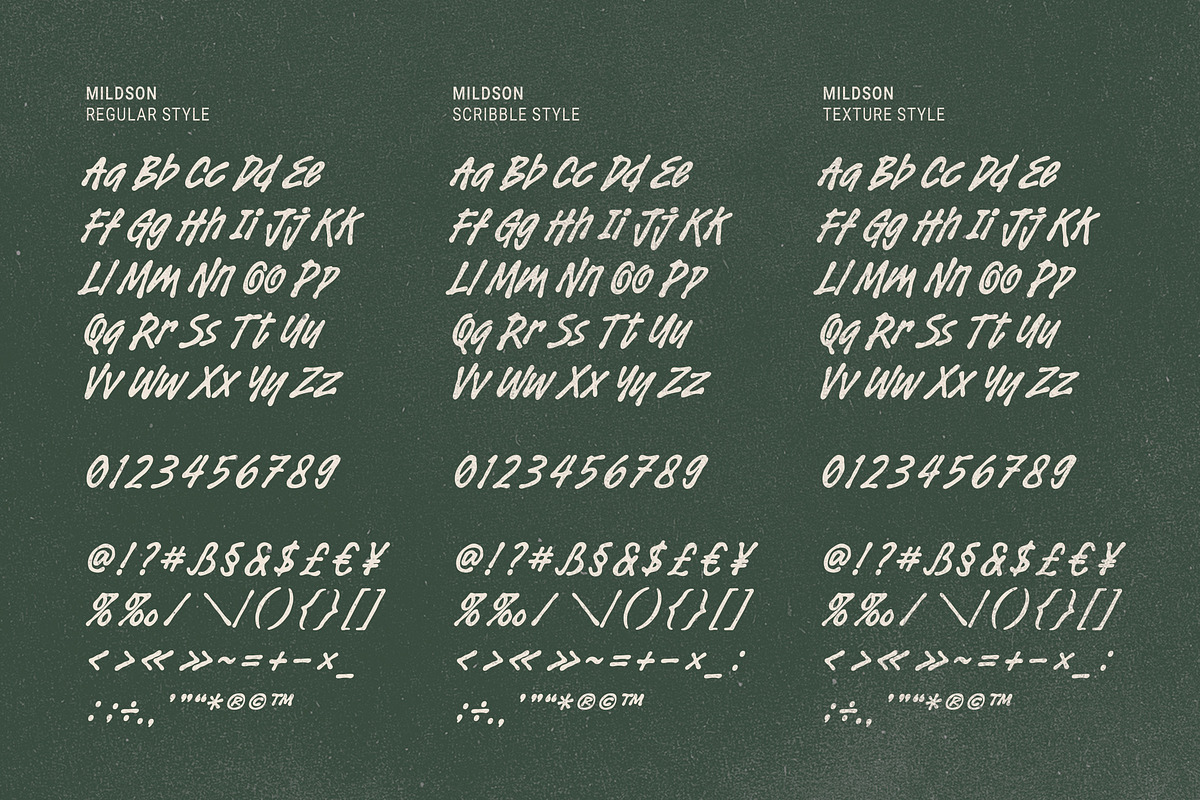 MILDSON
REGULAR STYLE
Aa Bb Cc Dd Ee
Ff Gg Hh Ii Jj Kk
Ll Mm Nn Oo Pp
Qq Rr Ss Tt Uu
Vv Ww Xx Yy Zz
0123456789
@!?#ß§&$£€¥
%‰/ \|(){}[]
<>«»~=+-×_
:;÷., ’”“*®©™
MILDSON
SCRIBBLE STYLE
Aa Bb Cc Dd Ee
Ff Gg Hh Ii Jj Kk
Ll Mm Nn Oo Pp
Qq Rr Ss Tt Uu
Vv Ww Xx Yy Zz
0123456789
@!?#ß§&$£€¥
%‰/ \|(){}[]
<>«»~=+-×_:
;÷., ’”“*®©™
MILDSON
TEXTURE STYLE
Aa Bb Cc Dd Ee
Ff Gg Hh Ii Jj Kk
Ll Mm Nn Oo Pp
Qq Rr Ss Tt Uu
Vv Ww Xx Yy Zz
0123456789
@!?#ß§&$£€¥
%‰/ \|(){}[]
<>«»~=+-×_:
;÷., ’”“*®©™